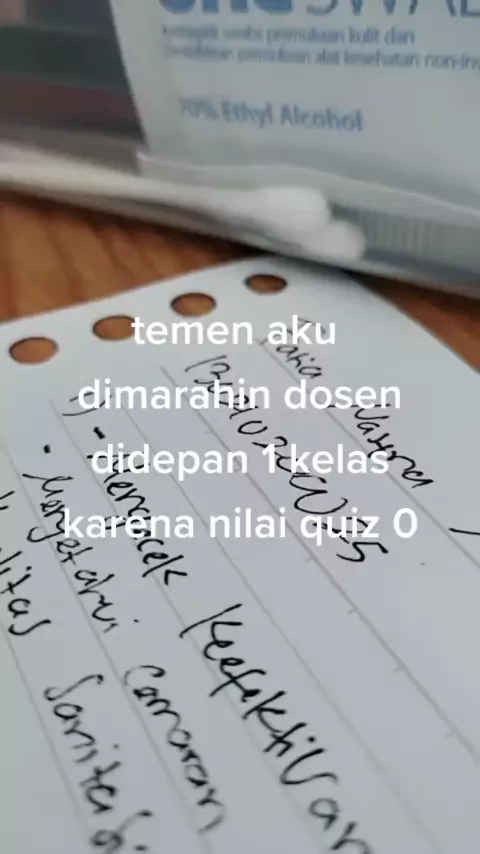 ONE SWAB
Antiseptik untuk permukaan kulit dan
permukaan alat kesehatan non-inv
70% Ethyl Alcohol
temen aku
dimarahin dosen
didepan 1 kelas
karena nilai quiz 0
1) - Mengecek Keefektivan
- Mengetahui Cemaran
Sanitasi